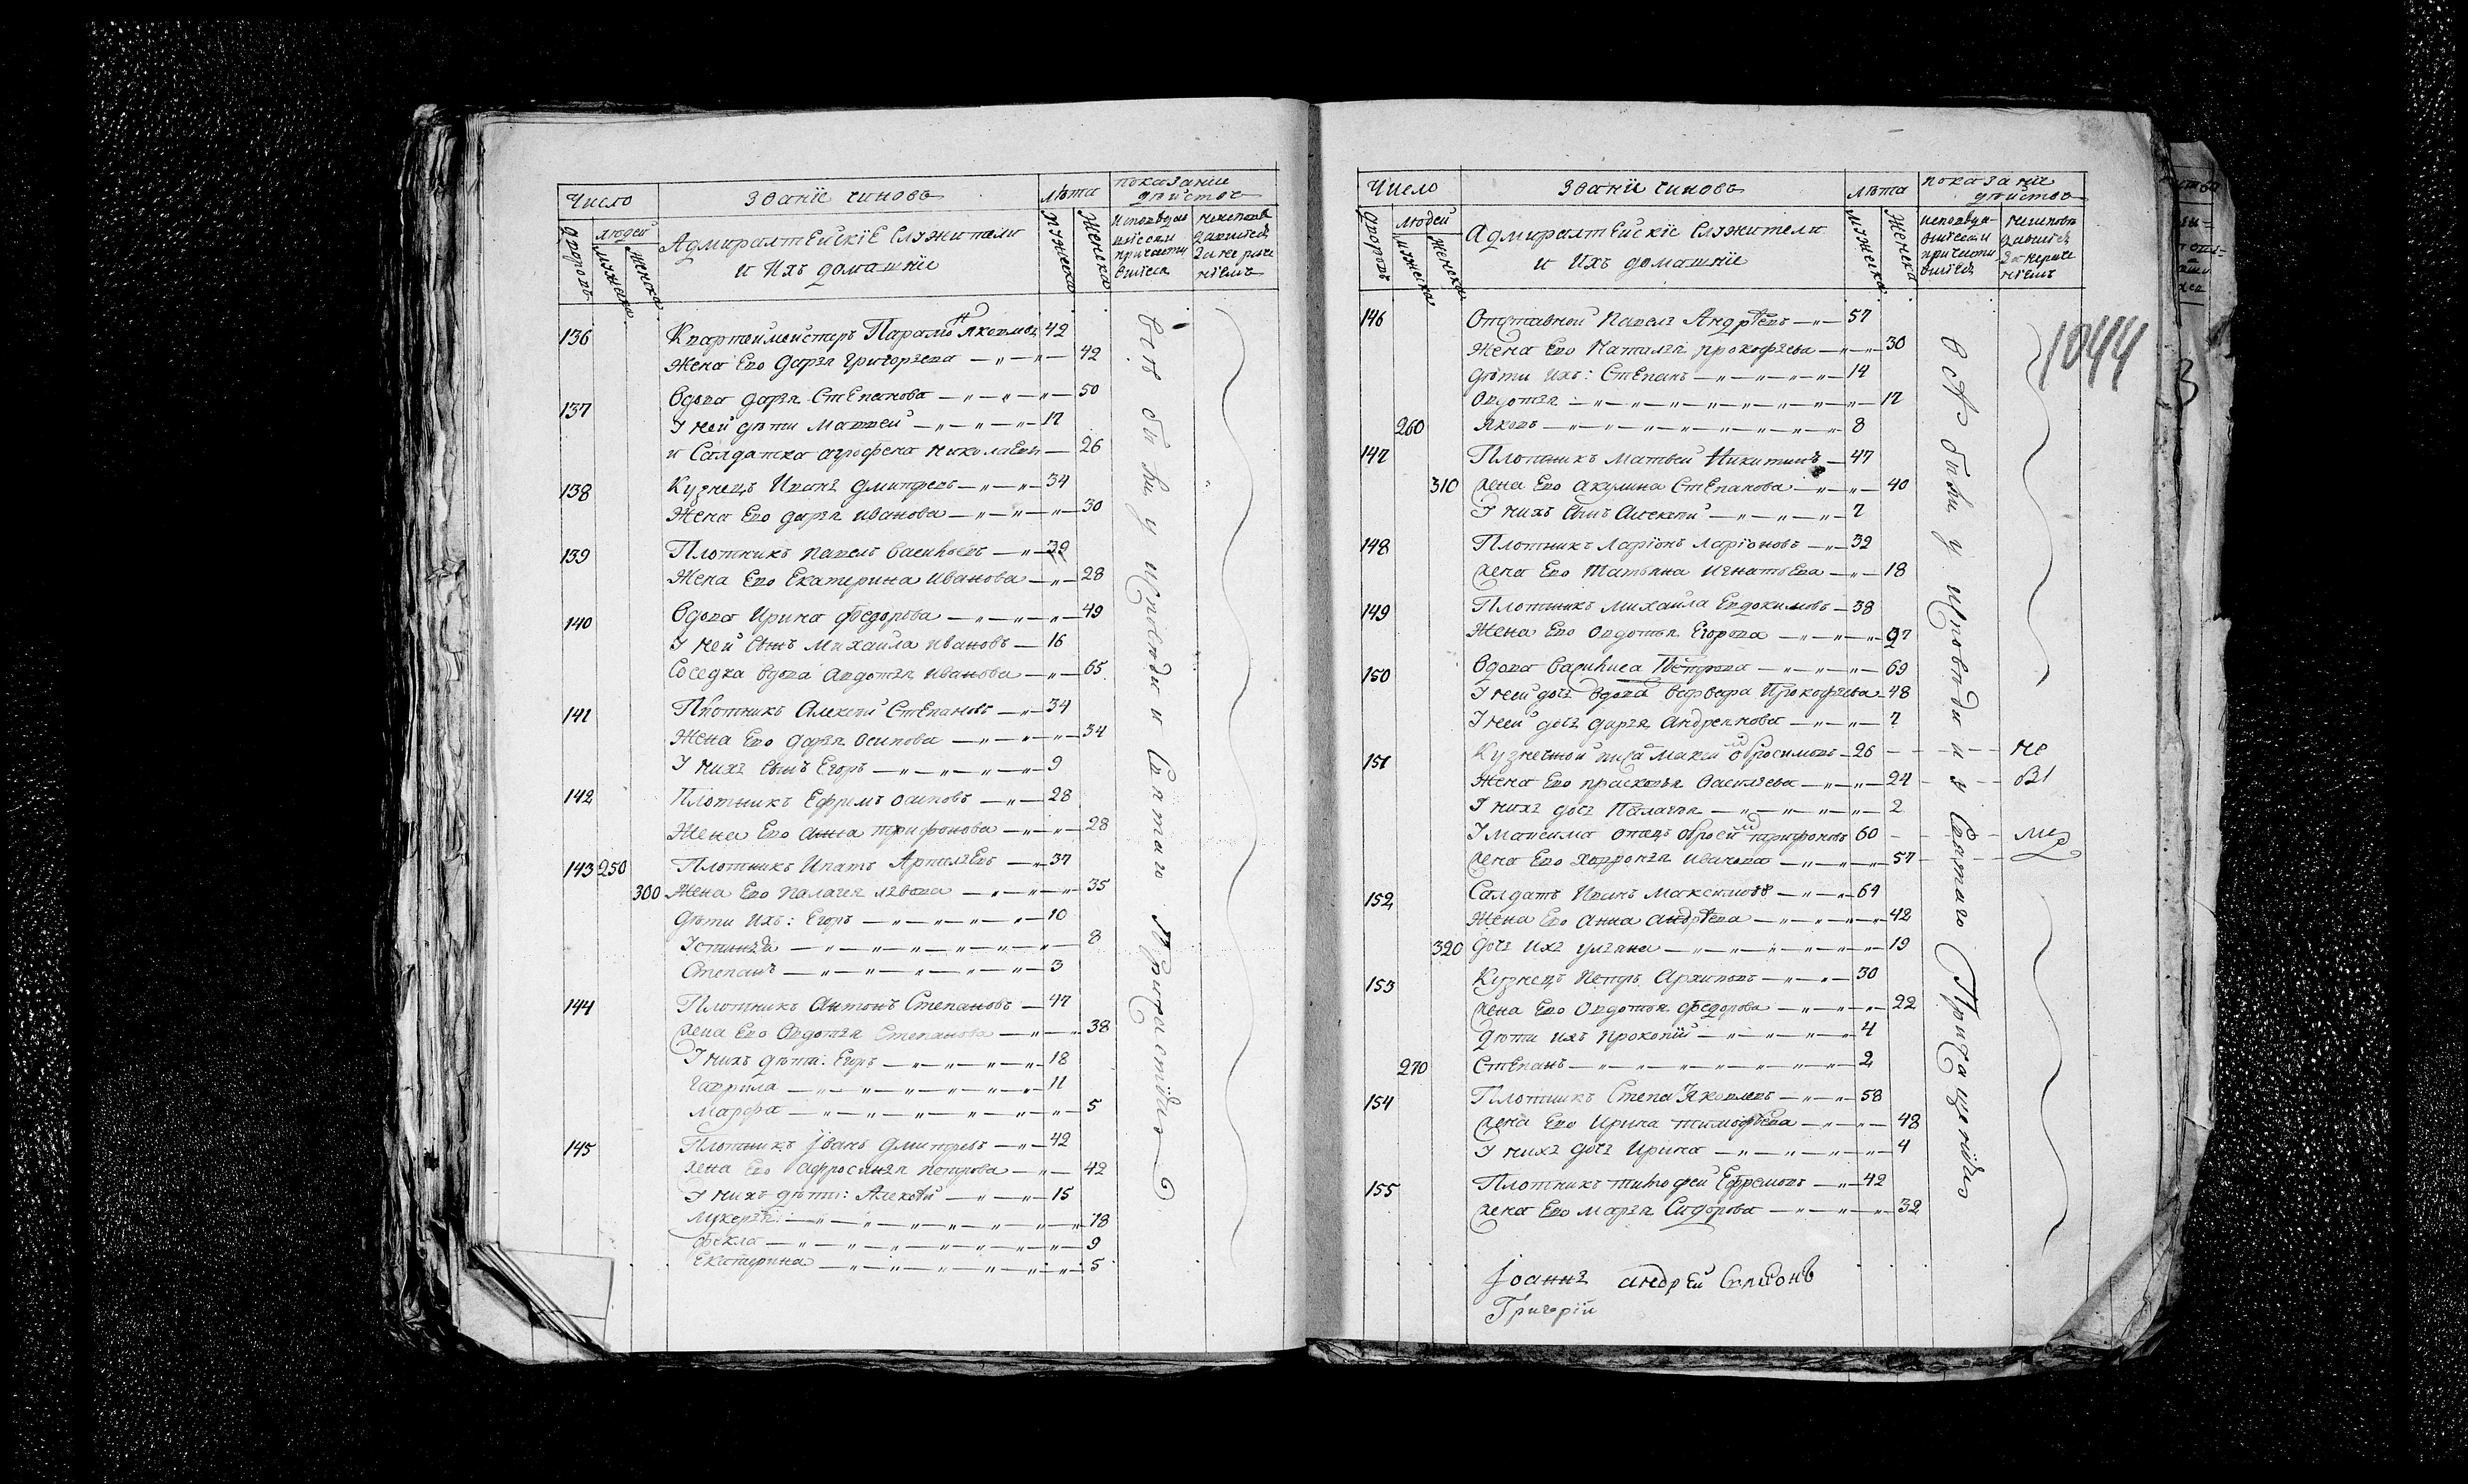 Число
званiе чиновъ
лѣта
показанiе
дѣйство
дворовъ
людей
мужеска
женска
Адмиралтейскiе служители
и ихъ домашнiе
мужеска
женска
136 Квартеймейстеръ Парамонъ Яковлевъ 42
Жена Ево Дарья Григорьева 42
137 Вдова Дарья Степанова 50
У ней дѣти Матвей 17
и Салдатка Агрофена Николаева 26
138 Кузнецъ Иванъ Дмитревъ 34
Жена Ево Дарья Иванова 30
139 Плотникъ Павелъ Васильевъ 39
Жена Ево Екатерина Иванова 28
140 Вдова Ирина Федорова 49
У ней сынъ Михайла Ивановъ 16
Соседка вдова Авдотья Иванова 65
141 Плотникъ Алексей Степановъ 34
Жена Ево Дарья Осипова 34
У нихъ сынъ Егоръ 9
142 Плотникъ Ефремъ Осиповъ 28
Жена Ево Анна Трифонова 28
143 250 Плотникъ Ипатъ 37
300 Жена Ево Палагея Львова 35
Дѣти ихъ: Егоръ 10
Устинья 8
Степанъ 3
144 Плотникъ Антонъ Степановъ 47
Жена Ево Овдотья Степанова 38
У нихъ дѣти: Егоръ 18
Гаврила 11
Марфа 5
145 Плотникъ Iванъ Дмитревъ 42
Жена Ево Афросинья Петрова 42
У нихъ дѣти: Алексѣй 15
Лукерья 18
Фекла 9
Екатерина 5
всѣ были у исповѣди и Святаго Причастiя
Число
званiе чиновъ
лѣта
показанiе
дѣйство
дворовъ
людей
мужеска
женска
Адмиралтейскiе служители
и ихъ домашнiе
мужеска
женска
1044
146 Отставной Павелъ Андрѣевъ 57
Жена Ево Наталья Прокофьева 30
Дѣти ихъ: Степанъ 14
Овдотья 12
260 Яковъ 8
147 Плотникъ Матвей Никитинъ 47
310 Жена Ево Акулина Степанова 40
У нихъ сынъ Алексей 7
148 Плотникъ Ларiонъ Ларiоновъ 32
Жена Ево Татьяна Игнатьева 18
149 Плотникъ Михайла Евдокимовъ 38
Жена Ево Овдотья Егорова 37
150 Вдова Василиса Петрова 69
У ней дочь вдова Варвара Прокофьева 48
У ней дочь Дарья Андреянова 7
151 Кузнечной Максим Обросимовъ 26
Жена Ево Прасковья Васильева 24
У нихъ дочь Палагея 2
У Максима отецъ Обросим Трифоновъ 60
Жена Ево Хавронья Иванова 57
152 Салдатъ Иванъ Максимовъ 64
Жена Ево Анна Андрѣева 42
320 Дочь ихъ Ульяна 19
153 Кузнецъ Петръ Архиповъ 30
Жена Ево Овдотья Федорова 22
Дѣти ихъ Прокопiй 4
270 Степанъ 2
154 Плотникъ Степа Яковлевъ 58
Жена Ево Ирина Тимофѣева 48
У нихъ дочь Ирина 4
155 Плотникъ Тимофей Ефремовъ 42
Жена Ево Марья Сидорова 32
всѣ были у исповѣди и Святаго Причащенiя
не
Iоаннъ Андрей
Григорiй